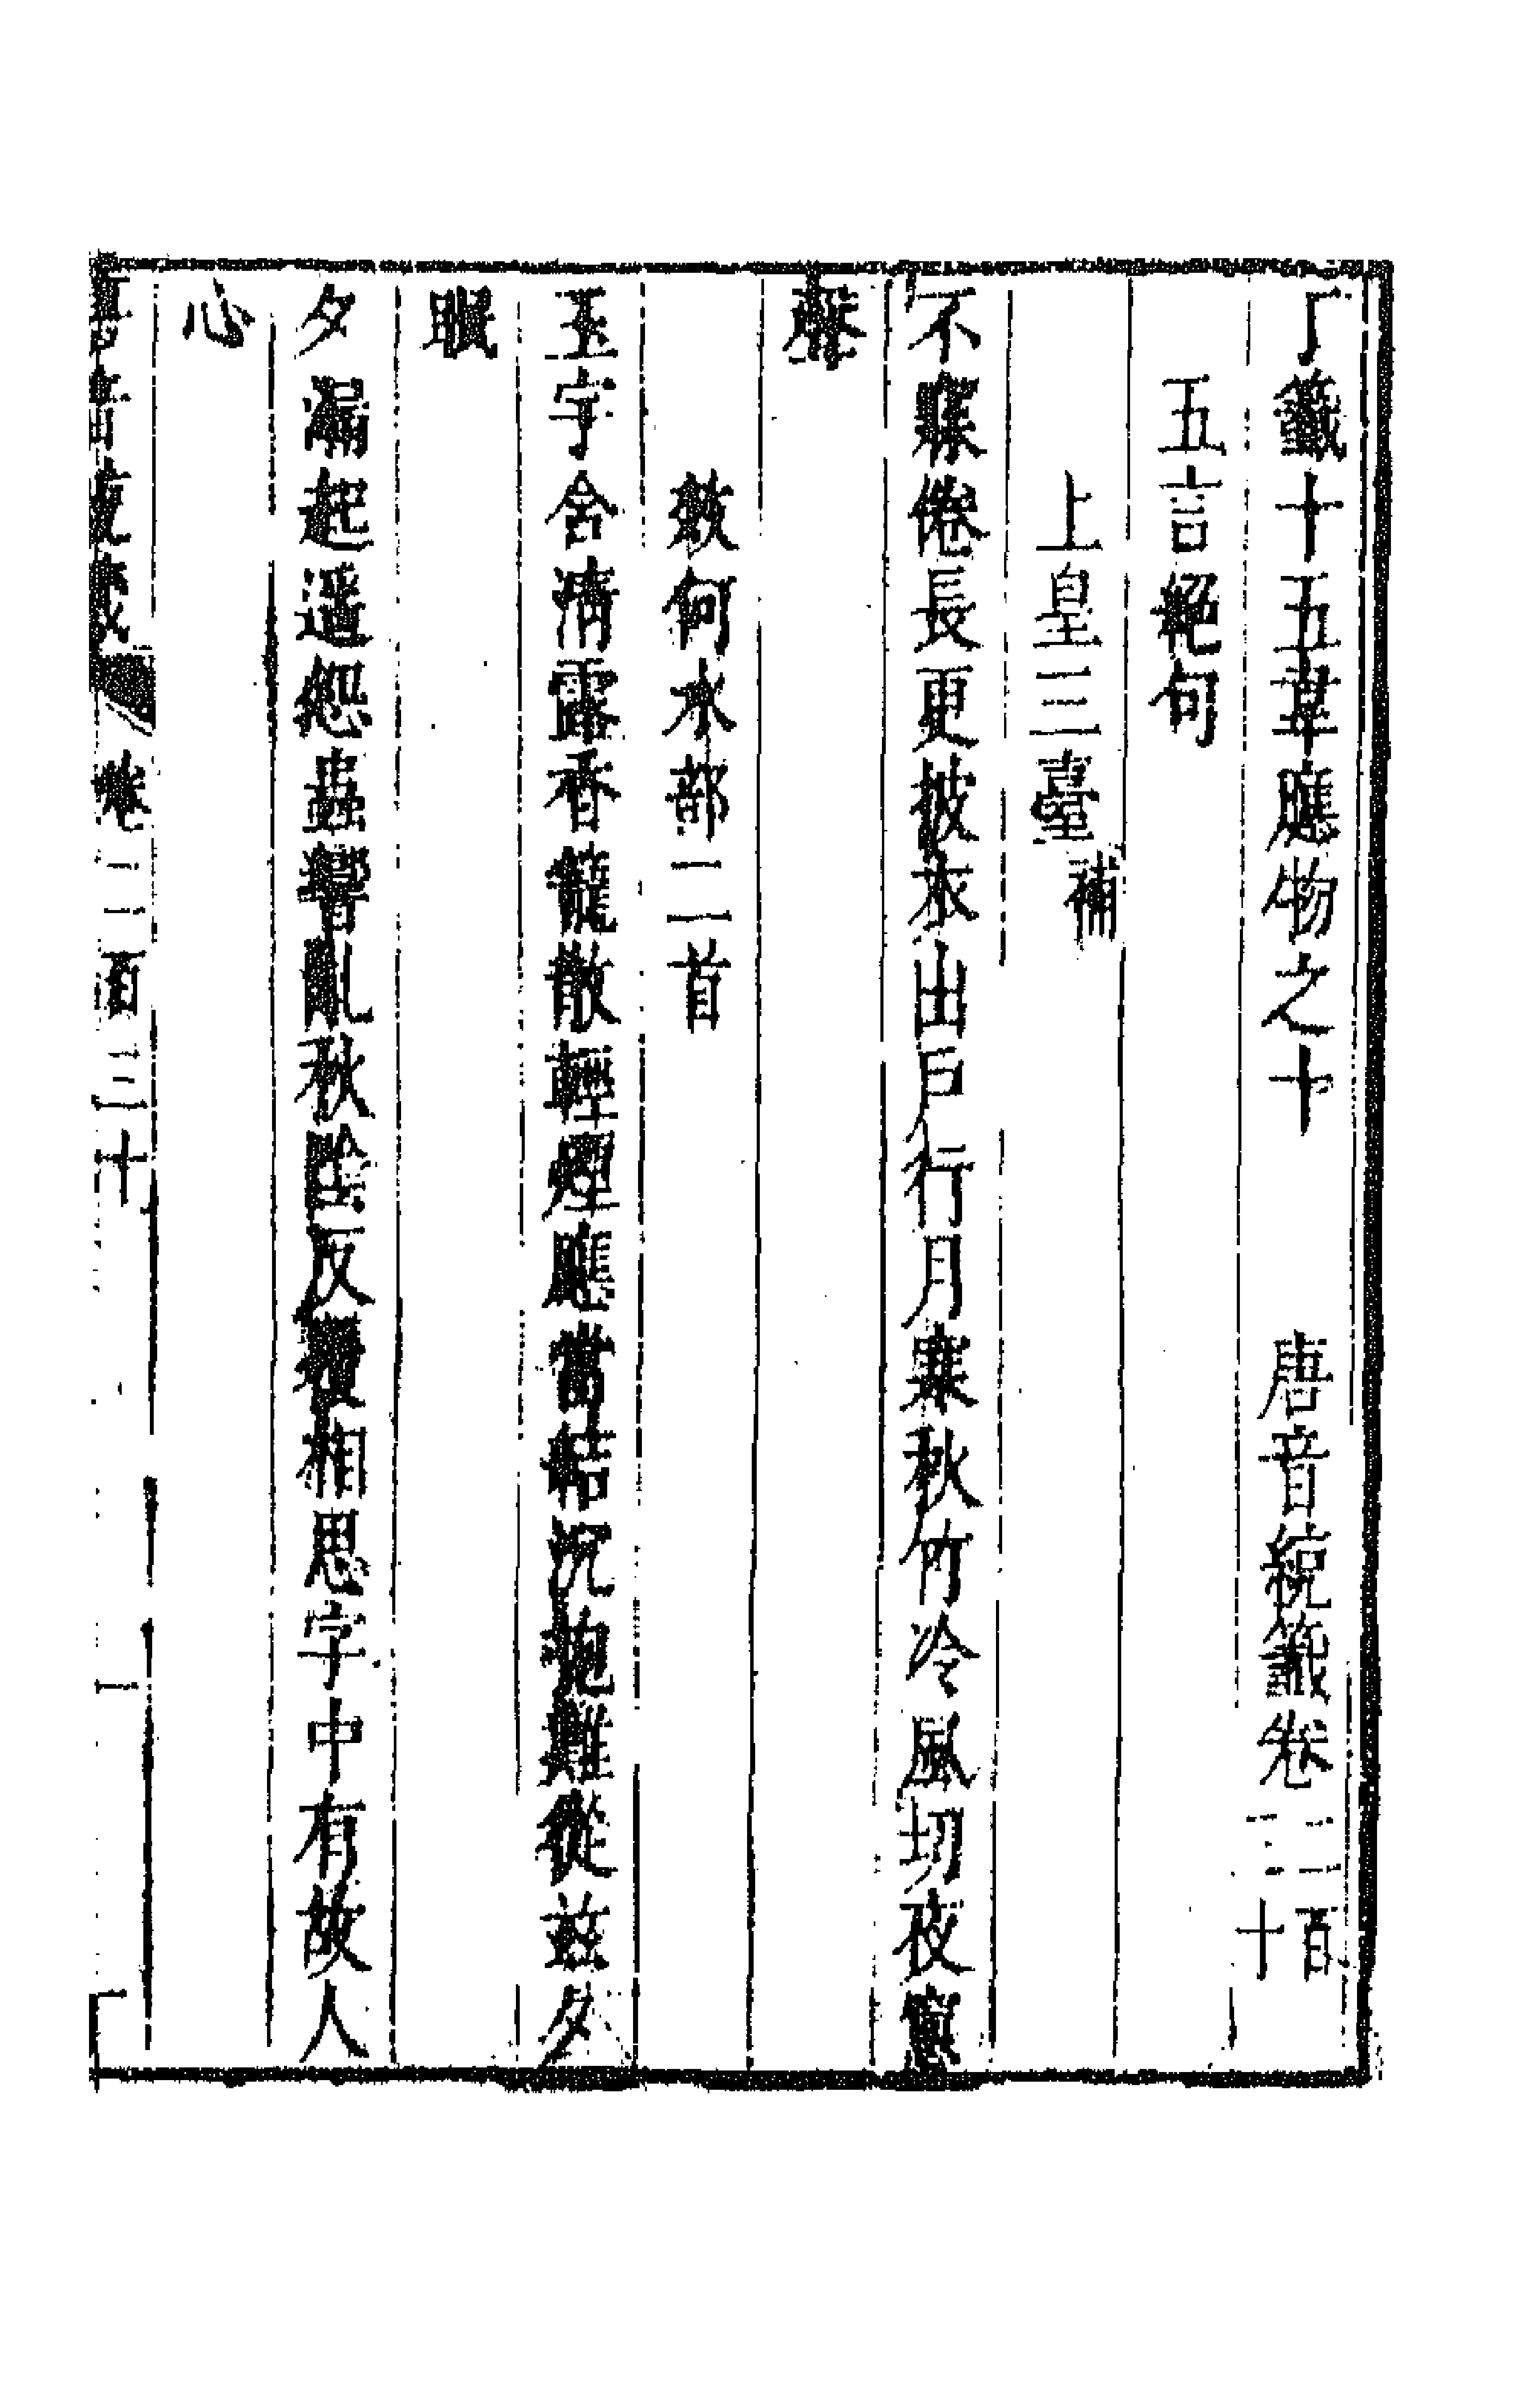 丁籤十五韋應物之十　唐音統籤卷二百三十
五言絕句
上皇三臺補
不寐倦長更披衣出戶行月寒秋竹冷風切夜窻
聲
效何水部二首
玉宇含清露香籠散輕煙應當結沉抱難從茲夕
眠
夕漏起遥怨蟲響亂秋陰反覆相思字中有故人
心
卷二百三十　一